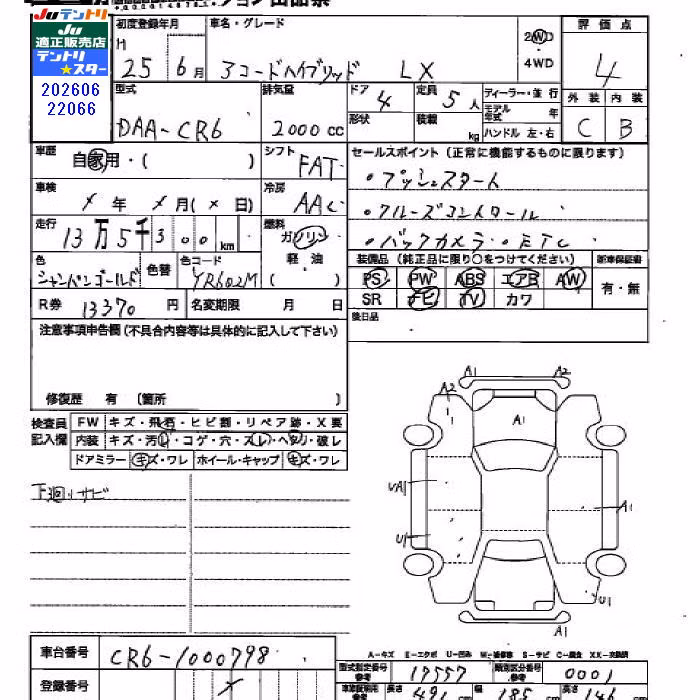 Juテントリ
JU
適正販売店
テントリ
★スター
202606
22066
初度登録年月
H
25 6月
車名・グレード
アコードハイブリッド LX
2WD
・
4WD
評価点
4
外装 内装
C B
型式
DAA-CR6
排気量
2000cc
ドア
4
形状
定員
5人
積載
kg
ディーラー・並行
モデル年式 年
ハンドル 左・右
車歴
自家用・( )
シフト
FAT
セールスポイント(正常に機能するものに限ります)
・プッシュスタート
・クルーズコントロール
・バックカメラ・ETC
車検
× 年 × 月(× 日)
冷房
AAC
走行
13万5千300km
燃料
ガソリン
軽油
( )
色
シャンパンゴールド
色替
色コード
YR602M
装備品(純正品に限り○をつけてください)
PS PW ABS エアB AW
SR ナビ TV カワ
新車保証書
有・無
R券 13370円
名変期限 月 日
後日品
注意事項申告欄(不具合内容等は具体的に記入して下さい)
修復歴 有 〔箇所 〕
検査員
記入欄
FW キズ・飛石・ヒビ割・リペア跡・X要
内装 キズ・汚れ・コゲ・穴・スレ・ヘタリ・破レ
ドアミラー キズ・ワレ ホイール・キャップ キズ・ワレ
下廻りサビ
A1
A2
A2
A1
UA1
A1
U1
U1
A1
車台番号 CR6-1000798
登録番号
A-キズ E-エクボ U-凹み W-補修車 S-サビ C-腐食 XX-交換済
型式指定番号
参考
17557
類別区分番号
参考
0001
長さ 491 cm 幅 185 cm 高さ 146 cm